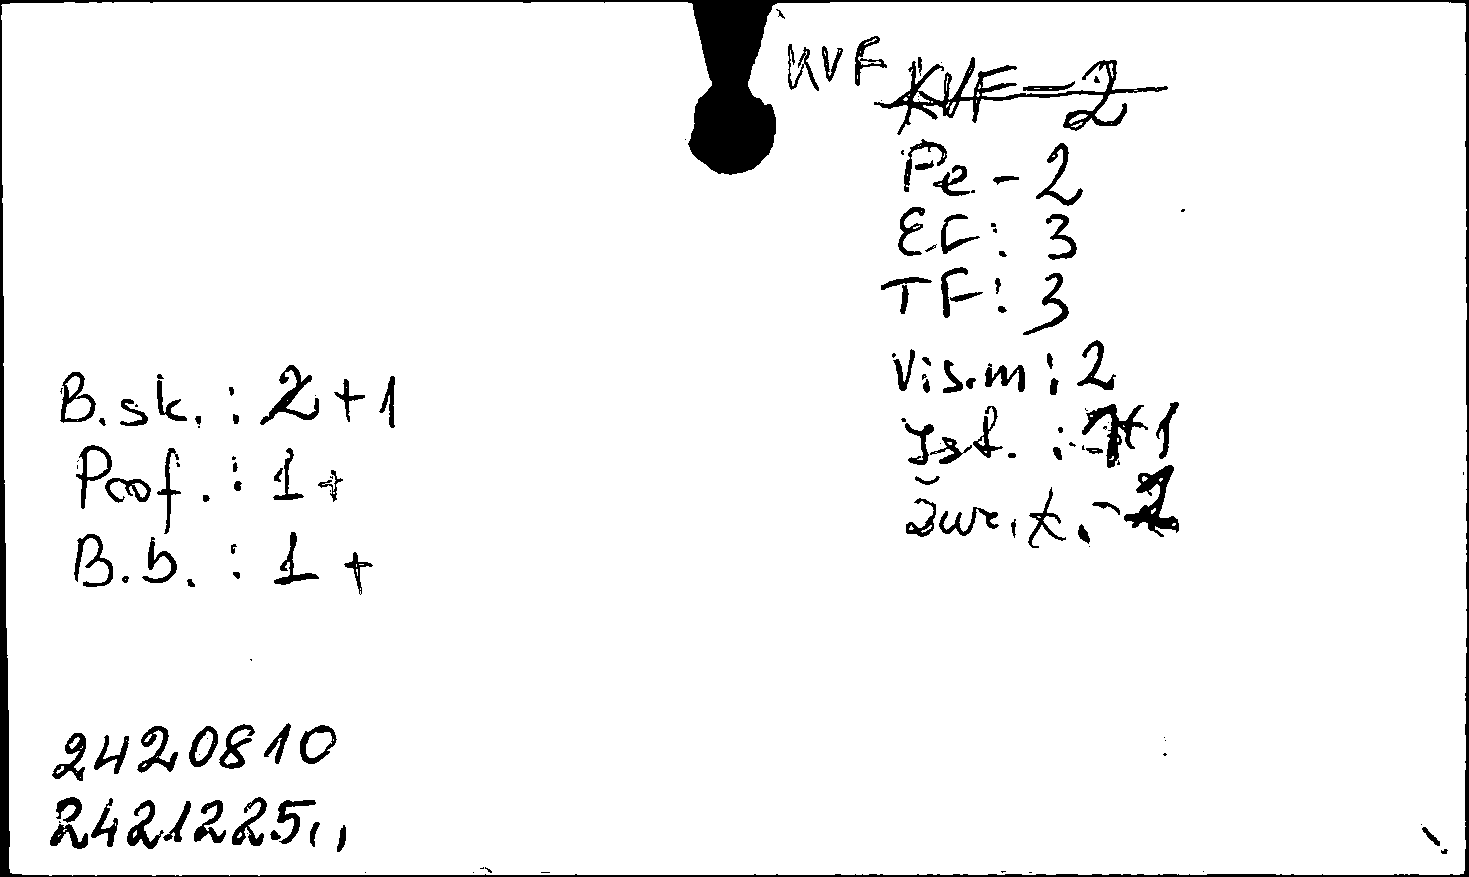 KVF KVF-2
Pe - 2
EF: 3
TF: 3
Vis.m: 2
Ist. : 1+1
B.sk. : 2+1
Prof. : 1+
B.b. : 1+
2420810
2421225,,